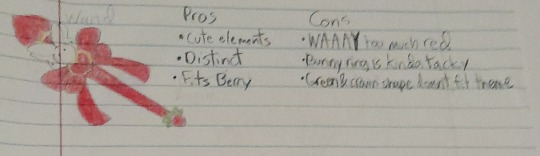 Wand
Pros Cons
•Cute elements •WAAAY too much red
•Distinct •Bunny ring is kinda tacky
•Fits Berry •Green & crown shape doesnt fit theme